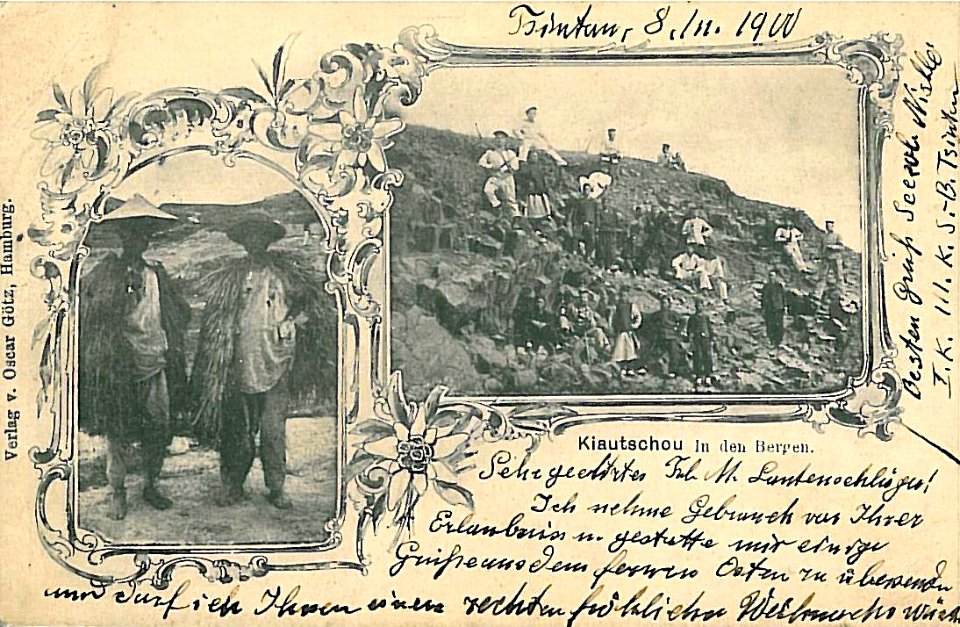 Tsintau, 8./11. 1900
Verlag v. Oscar Götz, Hamburg.
Kiautschou In den Bergen.
Sehr geehrtes Frl. M. Lautenschläger!
Ich nehme Gebrauch von Ihrer
Erlaubniss u. gestatte mir einige
Grüsse aus dem fernen Osten zu übersenden
und darf ich Ihnen einen rechten fröhlichen Weihnachts
Besten Gruß Seesole
I. K. III. K. S.-B. Tsintau